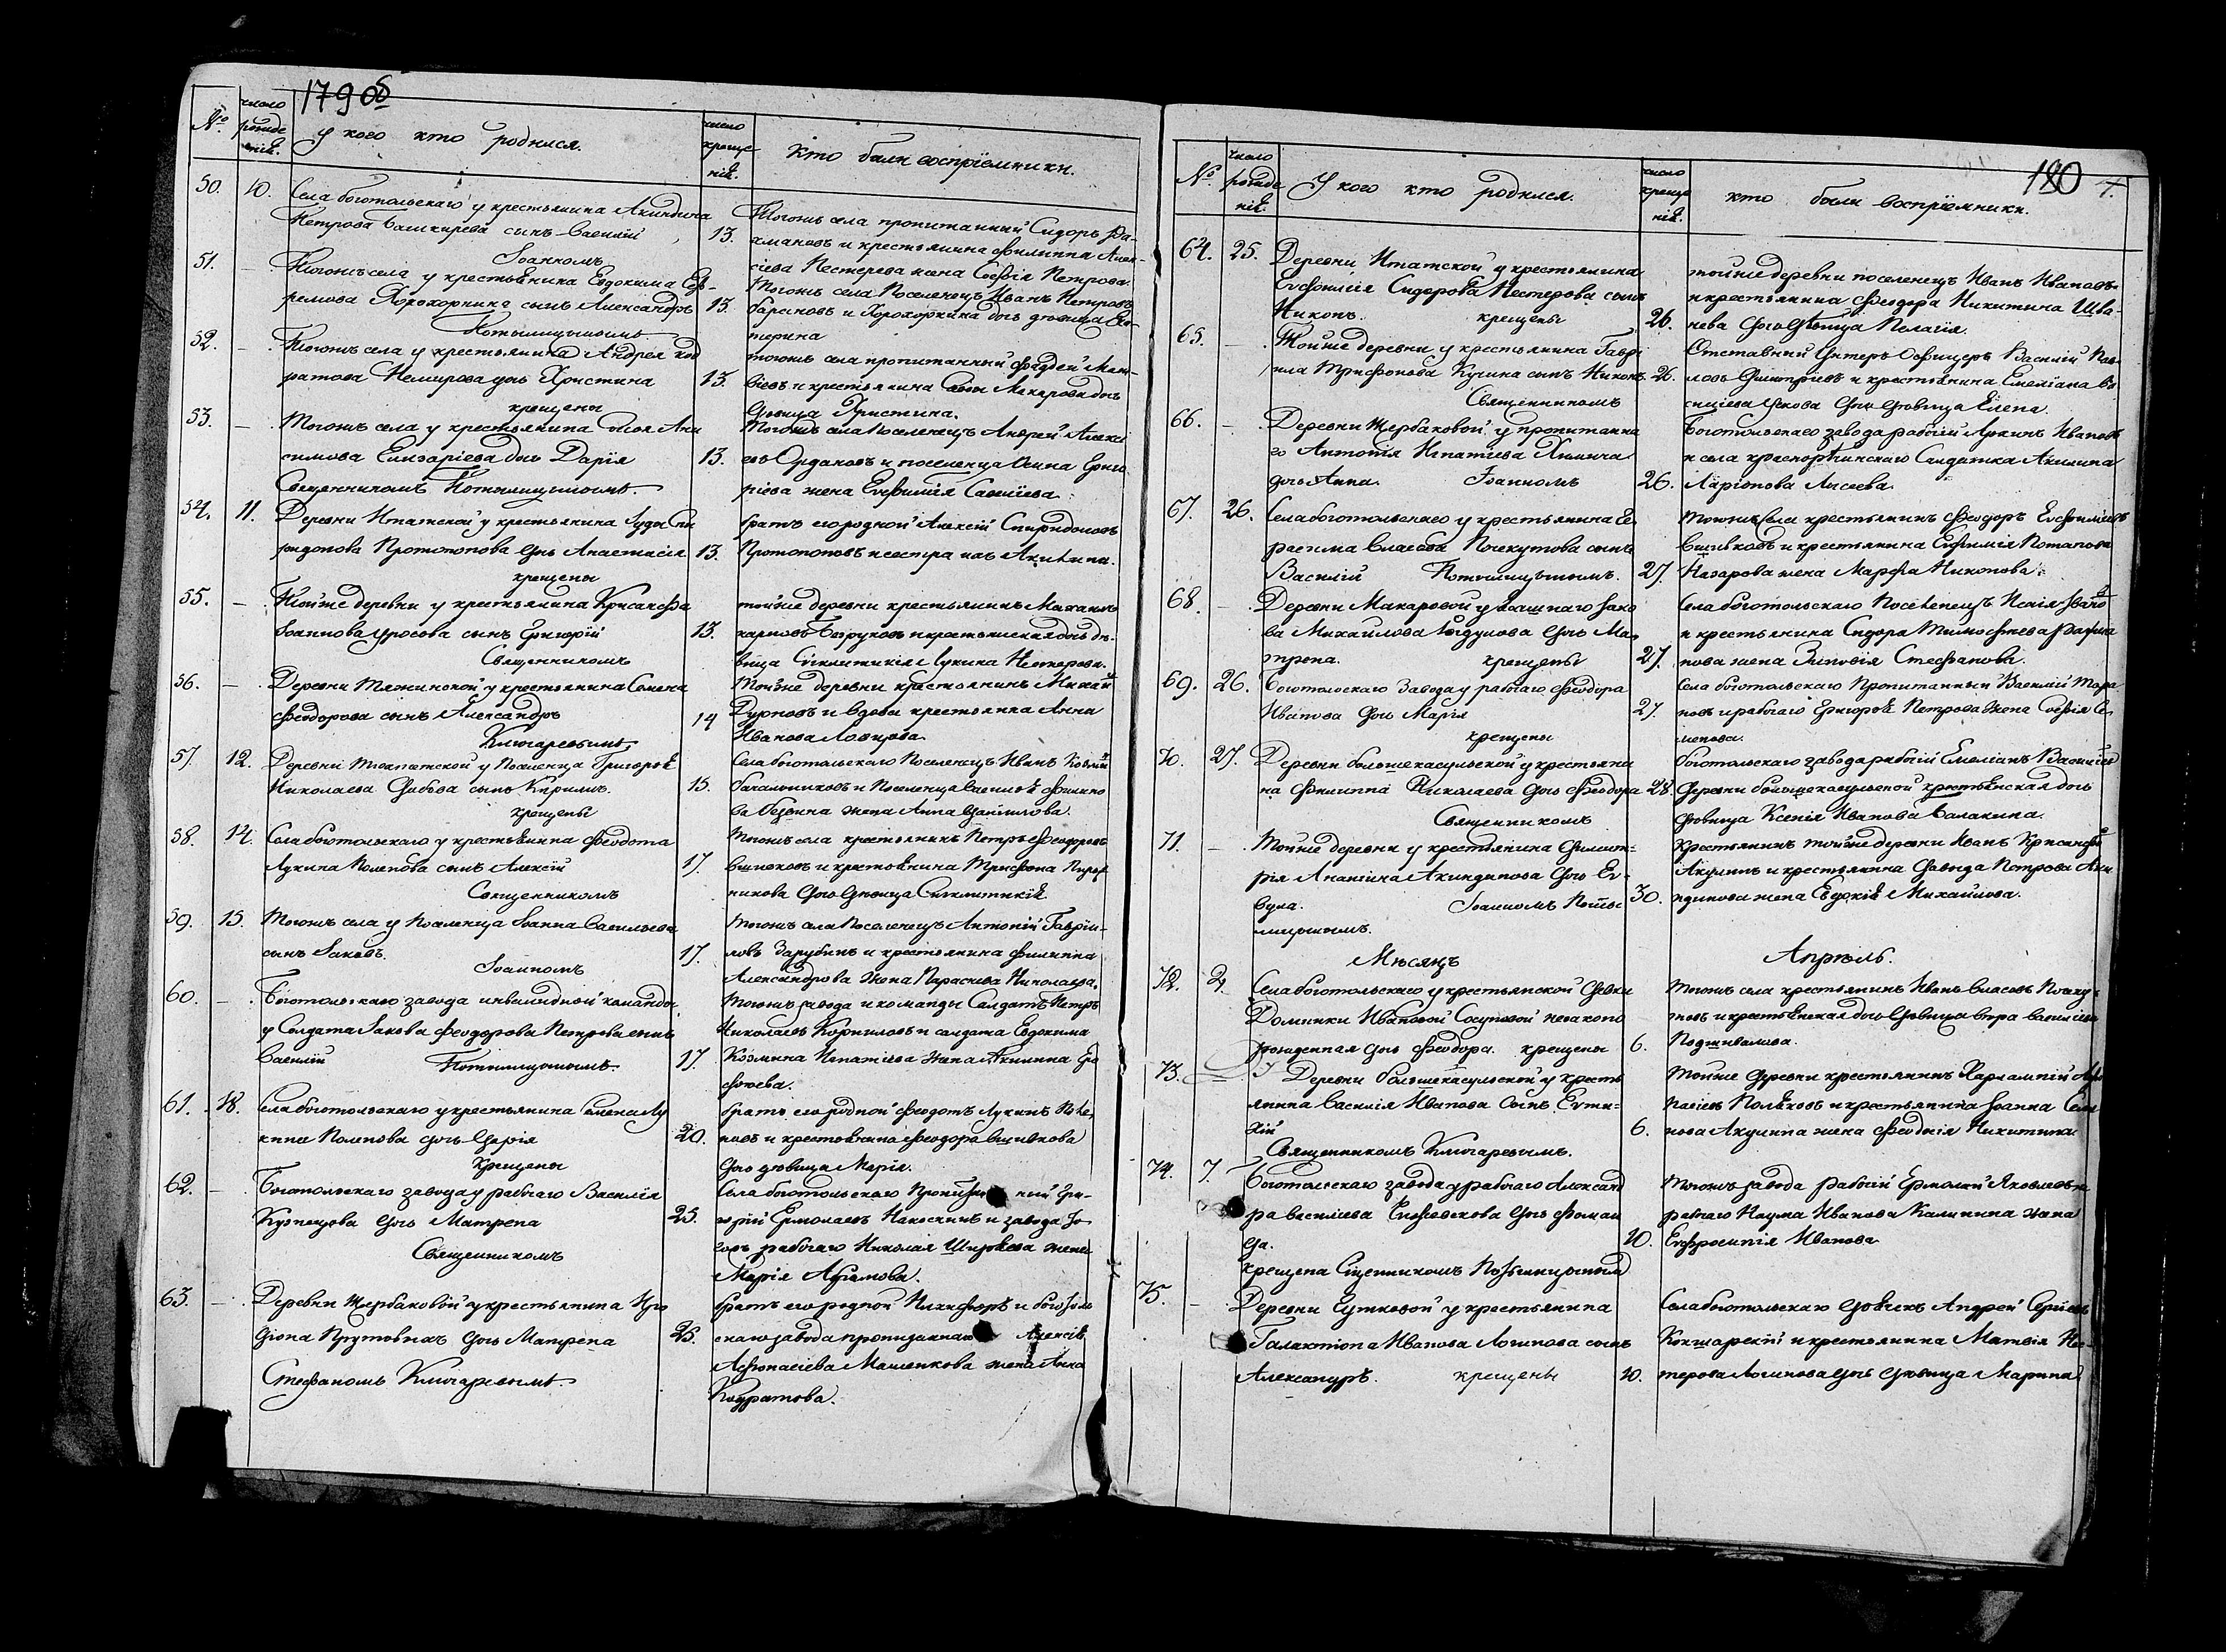 179об
№
число рожденій.
У кого кто родился.
число крещеній.
Кто были воспріемники.
50. 10. Села боготольскаго у крестьянина Акиндина
Петрова Башкирева сынъ Василій 13.
Іоанномъ
Тогожъ села пропитанный Сидоръ Ра-
хмановъ и крестьянина Филиппа Алек-
сіева Нестерева жена Софія Петрова.
51. — Тогожъ села у крестьянина Евдокима Еф-
ремова Хорохоркина сынъ Александръ 13.
Тогожъ села Поселенецъ Иванъ Петровъ
барсуковъ и Хорохоркина дочь дѣвица
терина
52. — Тогожъ села у крестьянина Андрея
ратова Немирова дочь Христина 13.
крещены
тогожъ села пропитанный Фадѣй Мат-
вѣевъ и крестьянина Макарова дочь
дѣвица Христина.
53. — Тогожъ села у крестьянина Ани
симова Елизаріева дочь Дарія 13.
Священникомъ
Тогожъ села Поселенецъ Андрей Алексі
евъ и поселенца Осипа Григо
ріева жена Евфимія Савеліева.
54. 11. Деревни Итатской у крестьянина Іуды Спи
ридонова Протопопова дочь Анастасія 13.
крещены
братъ его родной Алексій Спиридоновъ
Протопоповъ и сестра ихъ Акилина.
55. — Тойже деревни у крестьянина Крисанфа
Іоаннова Уросова сынъ Григорій 13.
Священникомъ
тойже деревни крестьянинъ Михаилъ
карповъ Безруковъ и крестьянская дочь дѣ-
вица Синклитикія Лукина Нестерова.
56. — Деревни Тяжинской у крестьянина Семена
Феодорова сынъ Александръ 14
Ключаревымъ
Тойже деревни крестьянинъ Михай
Дурновъ и вдова крестьянка Анна
Иванова
57. 12. Деревни Итатской у Поселенца Григорія
Николаева сынъ Кирилъ. 15.
крещены
Села боготольскаго Поселенецъ Иванъ
и Поселенца Василія Филипо
ва жена Анна Даніилова.
58. 14. Села боготольскаго у крестьянина Феодота
Лукина Полепова сынъ Алексій 17.
Священникомъ
Тогожъ села крестьянинъ Петръ Феодоровъ
вшивковъ и крестьянина Трифона
никова дочь дѣвица Синклитикія.
59. 15. Тогожъ села у Поселенца Іоанна Васильева
сынъ Іаковъ. 17.
Іоанномъ
Тогожъ села Поселенецъ Антоній Гавріи-
ловъ Зарубинъ и крестьянина Филиппа
Александрова жена Параскева Николаева.
60. — Боготольскаго завода инвалидной команды
у Солдата Іакова Феодорова Петрова сынъ
Василій 17.
Тогожъ завода и команды Солдатъ Петръ
Николаевъ Корниловъ и солдата Евдокима
Козмина Игнатіева жена Акилина
фоѳева.
61. 18. Села боготольскаго у крестьянина Семена Лу
кина Полепова дочь Дарія 20.
крещены
братъ его родной Феодотъ Лукинъ Поле
повъ и крестьянина Феодора вшивкова
дочь дѣвица Марія.
62. — Боготольскаго завода у рабочаго Василія
Кузнецова дочь Матрена 25.
Священникомъ
Села боготольскаго Пропитанный Гри-
горій Ермолаевъ Накоскинъ и завода бо
горъ рабочаго Николая Ширяева жена
Марія Абрамова.
63. — Деревни Щербаковой у крестьянина Иро
діона Прутовыхъ дочь Матрена 25.
Стефаномъ Ключаревымъ.
братъ его родной Никифоръ и боготоль
скаго завода пропитаннаго Алексія
Афонасіева Машенкова жена Анна
Кондратова.
180
№
число рожденій.
У кого кто родился.
число крещеній.
кто были воспріемники.
64. 25. Деревни Итатской у крестьянина
Евфимія Сидорова Нестерова сынъ
Никонъ. крещены 26.
тойже деревни поселенецъ Иванъ Ивановъ
и крестьянина Феодора Никитина Шва-
нева дочь дѣвица Пелагія.
65. — Тойже деревни у крестьянина Гаврі
ила Трифонова Кучина сынъ Никонъ. 26.
Священникомъ
Отставный Унтеръ Офицеръ Василій Пав-
ловъ Дмитріевъ и крестьянина Емеліана Ва
силіева Ускова дочь дѣвица Елена.
66. — Деревни Щербаковой у пропитанна
го Антонія Игнатіева Химича
дочь Анна. Іоанномъ 26.
Боготольскаго завода рабочій Аркипъ Ивановъ
и села краснорѣчинскаго Салдатка Акилина
Ларіонова Лисеева.
67. 26. Села боготольскаго у крестьянина Ге
расима Власова Почекутова сынъ
Василій 27.
Тогожъ Села крестьянинъ Феодоръ Евфиміевъ
Вшивковъ и крестьянина Евфимія Потапова
Назарова жена Марфа Никонова.
68. — Деревни Макаровой у Іако
ва Михайлова дочь Ма
трена. крещены 27.
Села боготольскаго Поселенецъ Исаія Ивано
и крестьянина Сидора Тимофеева Рахма
нова жена Зиновія Стефанова.
69. 26. Боготольскаго Завода у рабочаго Феодора
Иванова дочь Марія 27.
крещены
Села боготольскаго Пропитанный Василій Тара
новъ и рабочаго Григорія Петрова жена Софія Се
менова.
70. 27. Деревни большекосульской у крестьяни
на Филиппа Николаева дочь Феодора 28.
Священникомъ
боготольскаго завода рабочій Емеліанъ Василіевъ
Деревни большекосульской крестьянская дочь
дѣвица Ксенія Иванова Балакина.
71. — Тойже деревни у крестьянина Филимо-
рія Ананіина Акиндинова дочь Ев-
вула. Іоанномъ 30.
Крестьянинъ тойже деревни Иванъ Крисанфо
Акулинъ и крестьянина Давыда Петрова Аки
ндинова жена Евдокія Михайлова.
Мѣсяцъ Апрѣль.
72. 2. Села боготольскаго у крестьянской дѣвки
Домники Ивановой незаконо
рожденная дочь Феодора. крещены 6.
Тогожъ села крестьянинъ Иванъ Власовъ Почеку
товъ и крестьянская дочь дѣвица вѣра василіева
Подшивалова.
73. — Деревни большекосульской у кресть
янина Василія Иванова Сынъ Евти-
хій 6.
Священникомъ Ключаревымъ.
Тойже деревни крестьянинъ Харлампій
насіевъ Поляковъ и крестьянина Іоанна Семе
нова Акулина жена Феодосія Никитина.
74. 7. Боготольскаго завода у рабочаго Александ
ра василіева дочь Фомаи
да. 10.
крещена Священникомъ
Тогожъ завода рабочій Ермолай Яковлевъ и
рабочаго Наума Иванова Калинина жена
Евфросинія Иванова
75. — Деревни у крестьянина
Галактіона Иванова Логинова сынъ
Александръ. крещены 10.
Села боготольскаго дьячекъ Андрей Сергіевъ
Кокшарскій и крестьянина Матвія Нес-
терова Логинова дочь дѣвица Марина